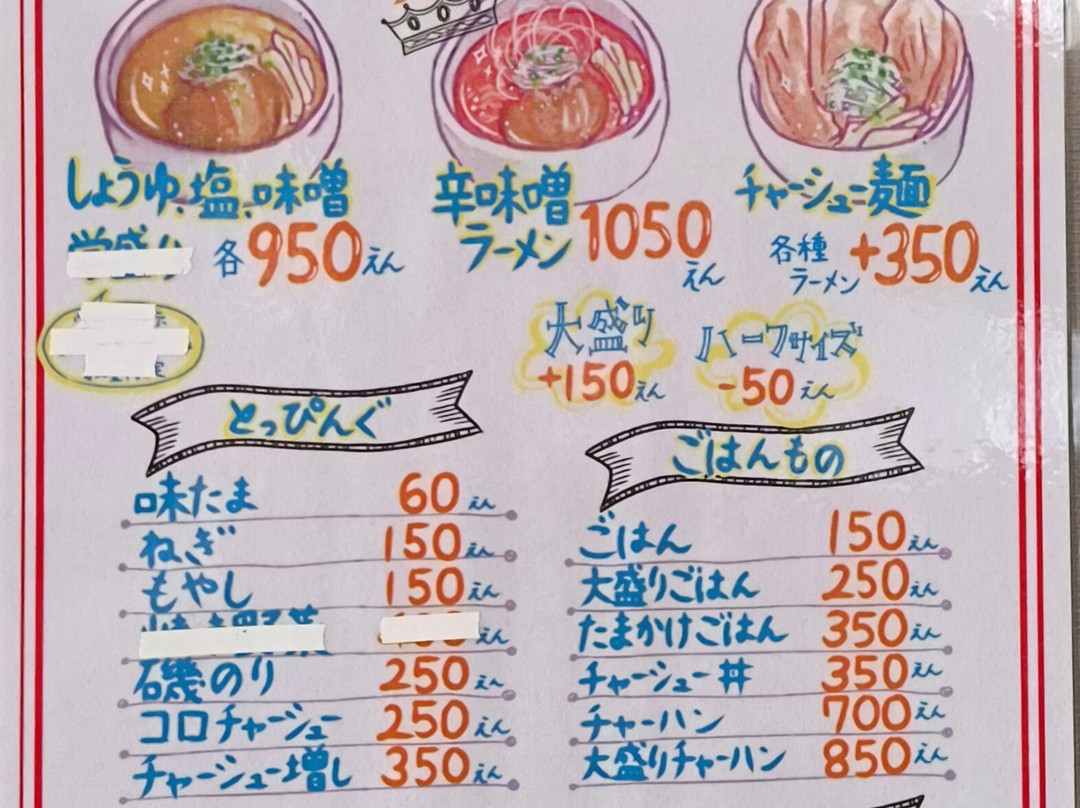 しょうゆ、塩、味噌
各950えん
辛味噌
ラーメン
1050えん
チャーシュー麺
各種
ラーメン
+350えん
大盛り
+150えん
ハーフサイズ
-50えん
とっぴんぐ
味たま 60えん
ねぎ 150えん
もやし 150えん
えん
磯のり 250えん
コロチャーシュー 250えん
チャーシュー増し 350えん
ごはんもの
ごはん 150えん
大盛りごはん 250えん
たまかけごはん 350えん
チャーシュー丼 350えん
チャーハン 700えん
大盛りチャーハン 850えん